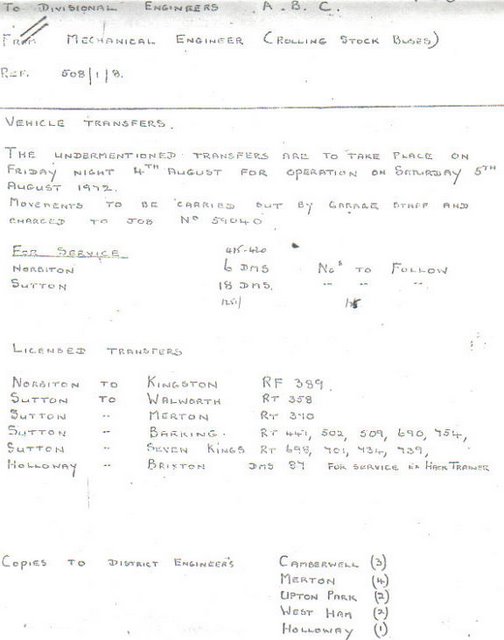 To Divisional Engineers A. B. C.
From Mechanical Engineer (Rolling Stock Buses)
Ref. 508/1/8.
Vehicle Transfers.
The undermentioned transfers are to take place on
Friday night 4TH August for operation on Saturday 5TH
August 1972.
Movements to be carried out by garage staff and
charged to Job No 59040
For Service 415-420
Norbiton 6 DMS Nos to Follow
Sutton 18 DMS. " " "
Licensed Transfers
Norbiton to Kingston RF 389.
Sutton to Walworth RT 358
Sutton " Merton RT 370
Sutton " Barking. RT 441, 502, 509, 690, 754,
Sutton " Seven Kings RT 698, 701, 734, 739,
Holloway " Brixton DMS 87 for service ex Hack Trainer
Copies to District Engineer's Camberwell (3)
Merton (4)
Upton Park (2)
West Ham (2)
Holloway (1)